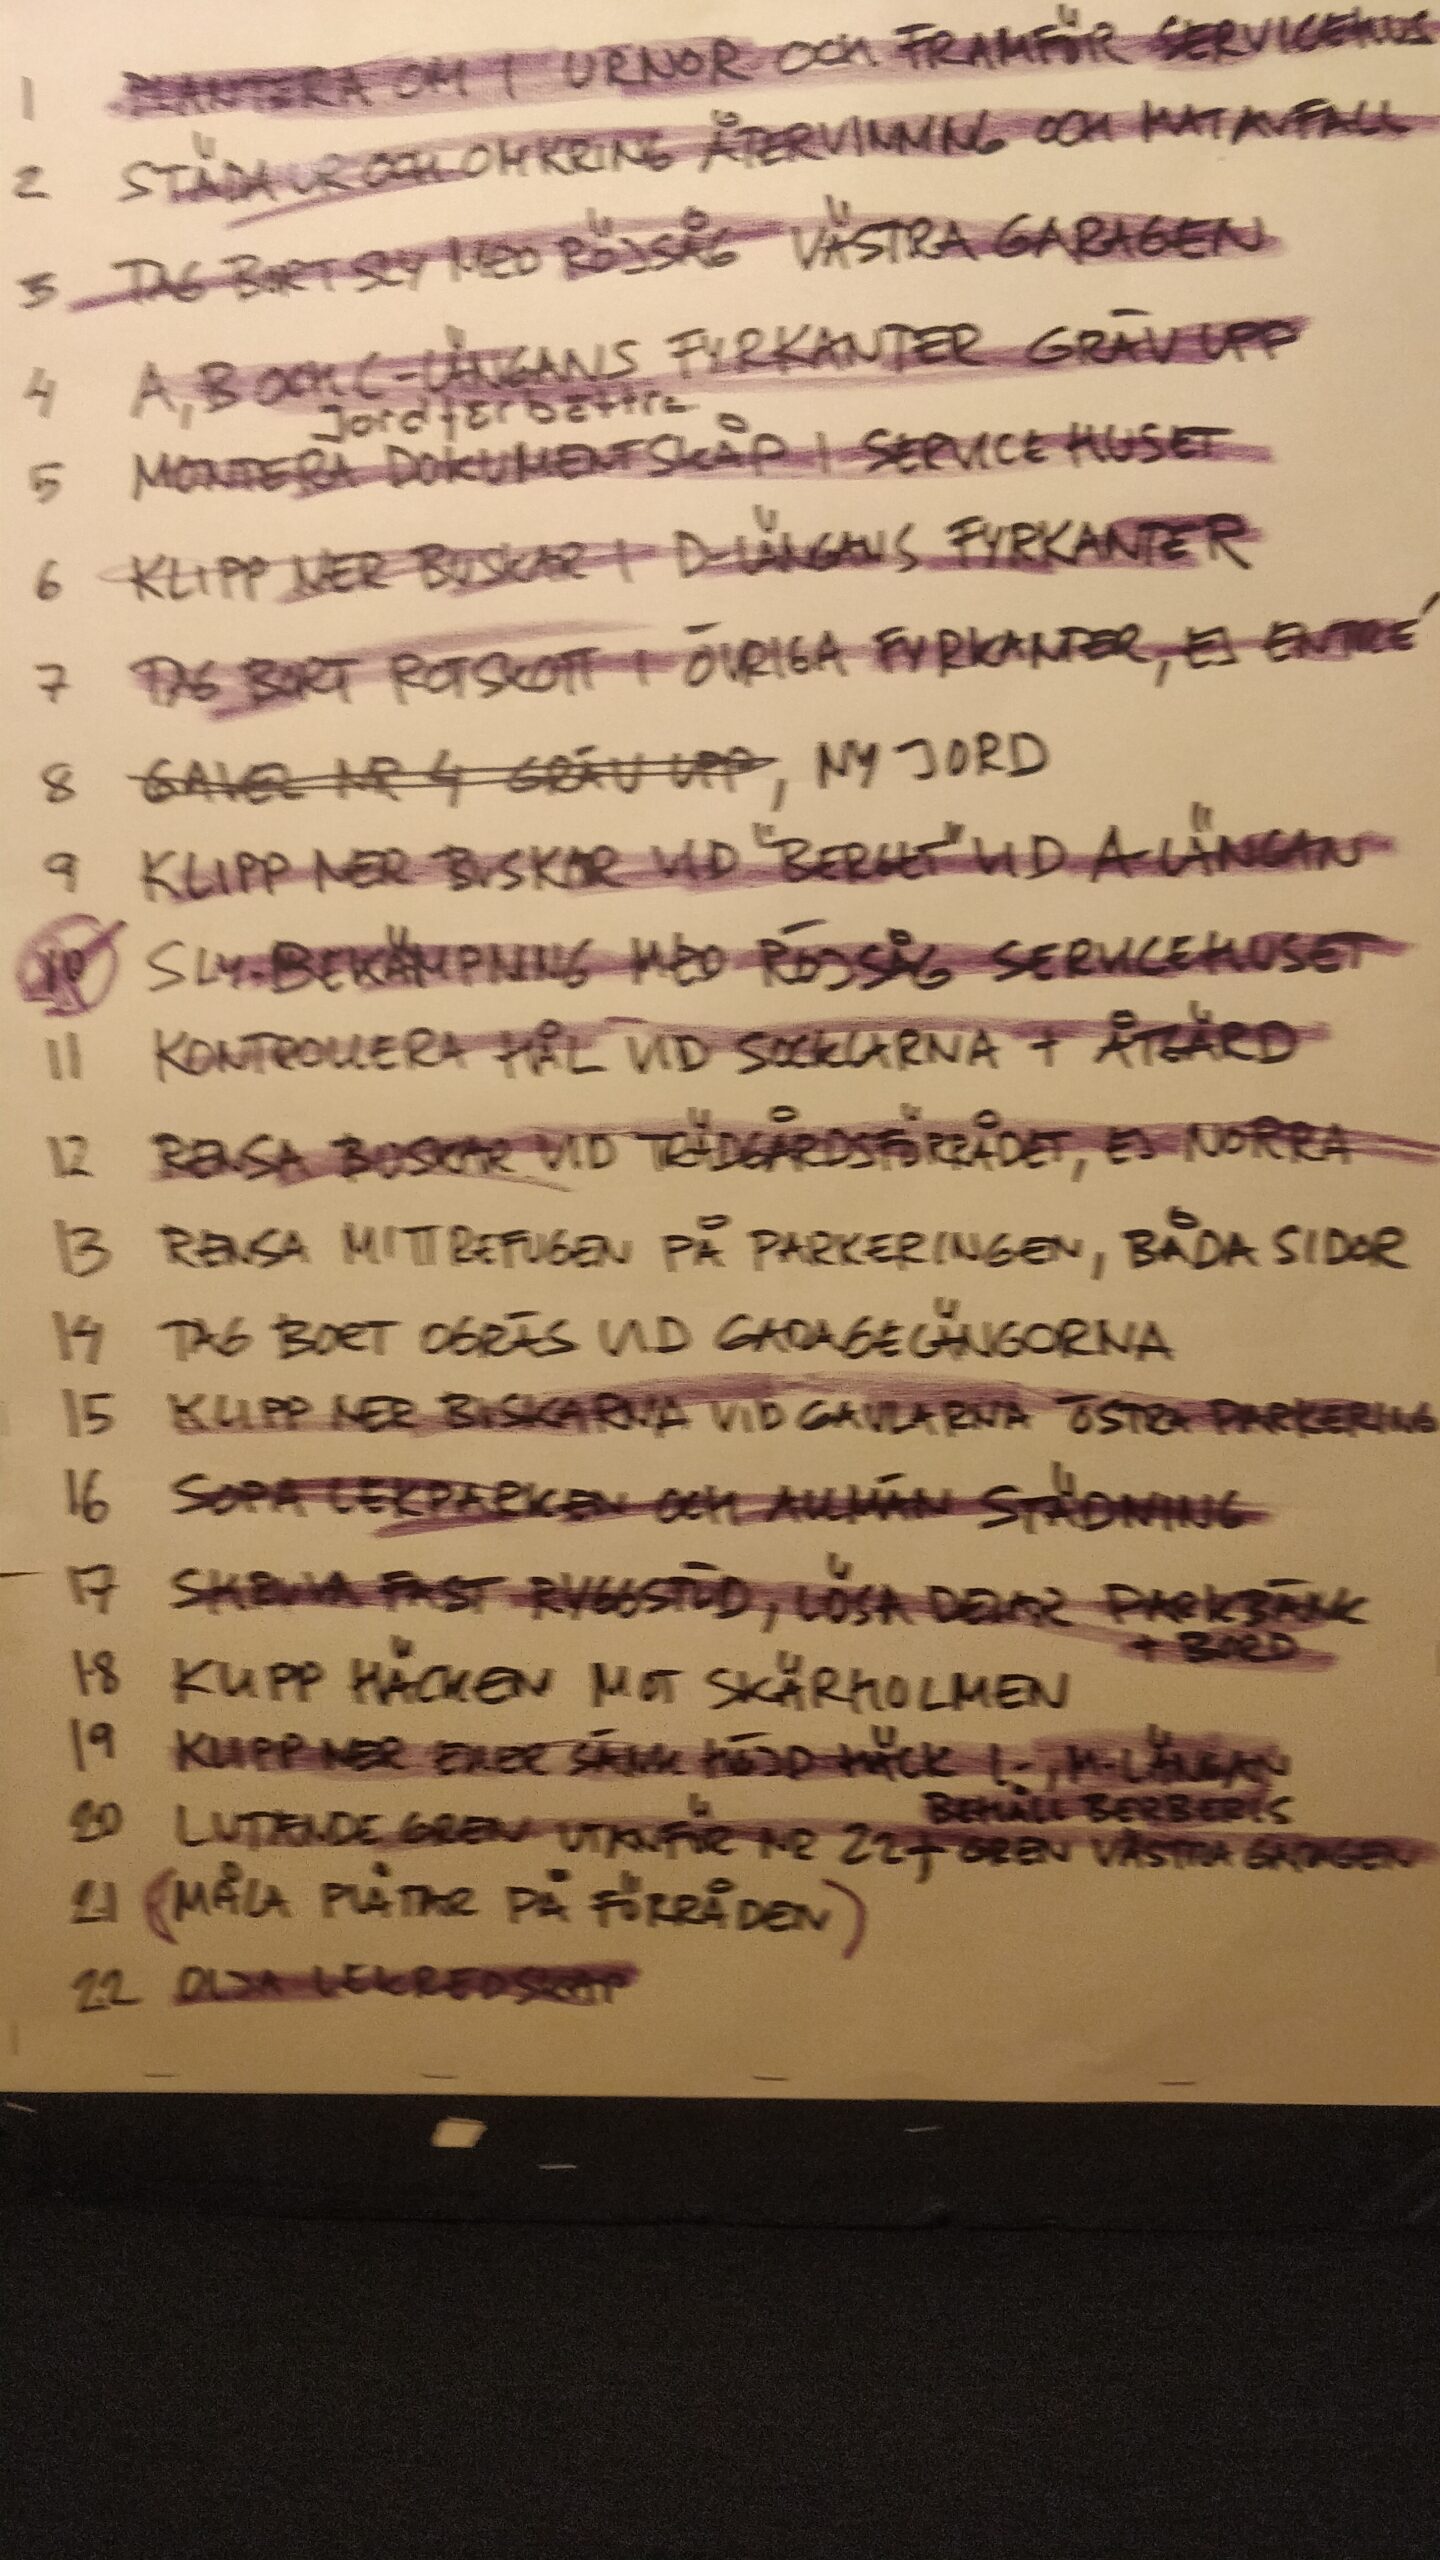 1 PLANTERA OM I URNOR OCH FRAMFÖR SERVICEHUS
2 STÄDA UR OCH OMKRING ÅTERVINNING OCH MATAVFALL
3 TAG BORT SLY MED RÖJSÅG VÄSTRA GARAGEN
4 A, B OCH C-LÄNGANS FYRKANTER GRÄV UPP
Jordförbättra
5 MONTERA DOKUMENTSKÅP I SERVICEHUSET
6 KLIPP NER BUSKAR I D-LÄNGANS FYRKANTER
7 TAG BORT ROTSKOTT I ÖVRIGA FYRKANTER, EJ ENTRÉ
8 GAVEL NR 4 GRÄV UPP, NY JORD
9 KLIPP NER BUSKAR VID "BERGET" VID A-LÄNGAN
10 SLY-BEKÄMPNING MED RÖJSÅG SERVICEHUSET
11 KONTROLLERA HÅL VID SOCKLARNA + ÅTGÄRD
12 RENSA BUSKAR VID TRÄDGÅRDSFÖRRÅDET, EJ NORRA
13 RENSA MITTREFUGEN PÅ PARKERINGEN, BÅDA SIDOR
14 TAG BORT OGRÄS VID GARAGELÄNGORNA
15 KLIPP NER BUSKARNA VID GAVLARNA ÖSTRA PARKERING
16 SOPA LEKPARKEN OCH ALLMÄN STÄDNING
17 SKRUVA FAST RYGGSTÖD, LÖSA DELAR PARKBÄNK
+ BORD
18 KLIPP HÄCKEN MOT SKÄRHOLMEN
19 KLIPP NER ELLER SÄNK HÖJD HÄCK L-, M-LÄNGAN
BEHÅLL BERBERIS
20 LUTANDE GREN UTANFÖR NR 22 + GREN VÄSTRA GARAGEN
21 (MÅLA PLÅTAR PÅ FÖRRÅDEN)
22 OLJA LEKREDSKAP